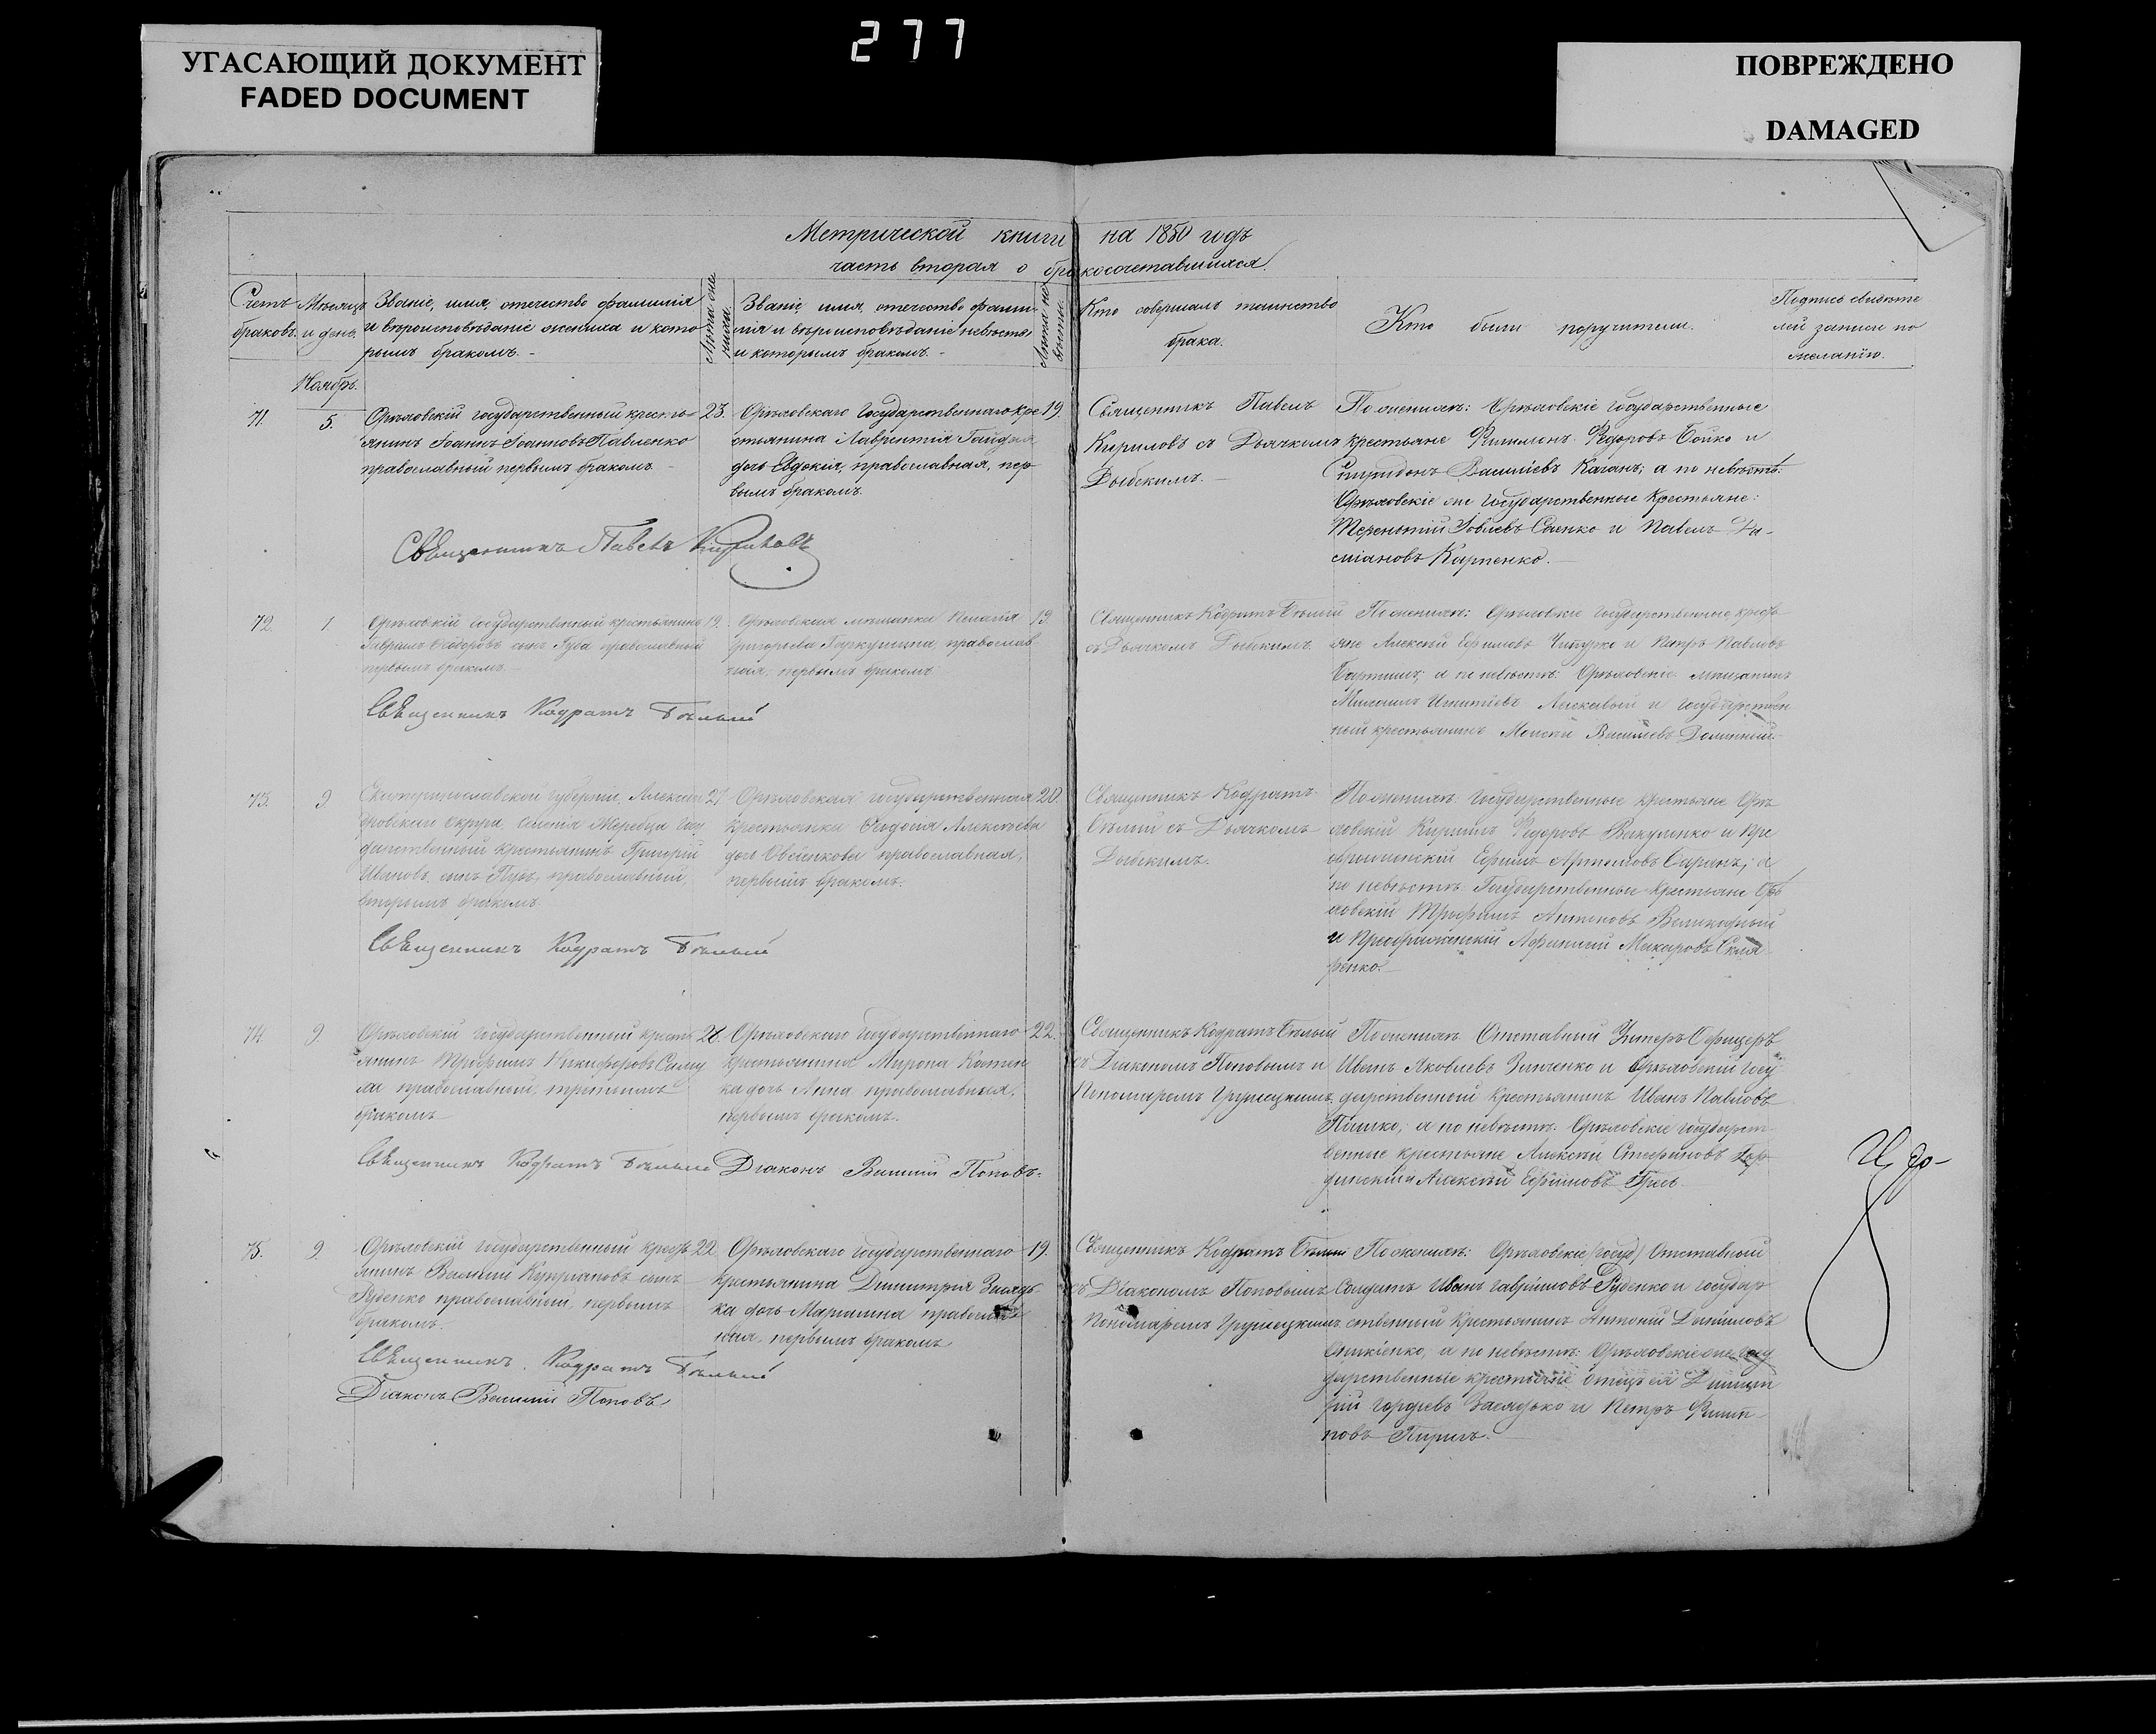 УГАСАЮЩИЙ ДОКУМЕНТ
FADED DOCUMENT
277
ПОВРЕЖДЕНО
DAMAGED
Метрической книги на 1850 годъ
часть вторая о бракосочетавшихся.
Счетъ браковъ.
Мѣсяцъ и день.
Званіе, имя, отечество фамилія
и вѣроисповѣданіе жениха и кото
рымъ бракомъ.
Лѣта жениха.
Званіе, имя, отечество фами-
лія и вѣроисповѣданіе невѣсты,
и которымъ бракомъ.
Лѣта невѣсты.
Кто совершалъ таинство
брака.
Кто были поручители.
Подпись свидѣте
лей записи по
желанію.
Ноябрь.
71.
5.
Орѣховскій государственный кресть-
янинъ Іоаннъ Іоанновъ Павленко
православный первымъ бракомъ
23.
Орѣховскаго Государственнаго кре
стьянина Лаврентія
дочь Евдокія, православная, пер
вымъ бракомъ.
19.
Священникъ Павелъ
Кириловъ съ Дьячкомъ
Дыбскимъ.
По женихѣ: Орѣховскіе государственные
крестьяне Филимонъ Федоровъ Бойко и
Спиридонъ Василіевъ Каганъ; а по невѣстѣ:
Орѣховскіе же Государственные Крестьяне:
Терентій Іовлевъ Саенко и Павелъ Да-
міановъ Карпенко.
Священникъ Павелъ Кириловъ
72.
1
Орѣховскій государственный крестьянинъ
Гавріилъ Феодоровъ сынъ Губа православный
первымъ бракомъ
19.
Орѣховская мѣщанка Пелагія
Григорьева православ
ная, первымъ бракомъ
19.
Священникъ Кодратъ Бѣлый
съ Дьячкомъ Дыбскимъ.
По женихѣ: Орѣховскіе государственные кресть
яне Алексій Ефимовъ и Петръ Павловъ
а по невѣстѣ: Орѣховскіе мѣщанинъ
Михаилъ Игнатіевъ и государствен
ный крестьянинъ Моисей Василіевъ
Священникъ Кодратъ Бѣлый
73.
9
Екатеринославской губерніи, Алексан
дровскаго округа, селенія Жеребца Госу
дарственный крестьянинъ Григорій
Ивановъ сынъ православный
вторымъ бракомъ
27
Орѣховская государственная
крестьянка Феодосія Алексѣева
дочь Овсіенкова православная,
первымъ бракомъ.
20.
Священникъ Кодратъ
Бѣлый съ Дьячкомъ
Дыбскимъ.
По женихѣ: Государственные крестьяне Орѣ
ховскій Кирилъ Федоровъ Вакуленко и Пре
Ефимъ Артемовъ Саранъ; а
по невѣстѣ: Государственные крестьяне Орѣ
ховскій Трофимъ Антоновъ
и Преображенскій Афанасій Макаровъ Скля
ренко.
Священникъ Кодратъ Бѣлый
74.
9.
Орѣховскій государственный кресть
янинъ Трофимъ Никифоровъ
православный, третьимъ
бракомъ
28.
Орѣховскаго Государственнаго
крестьянина Мирона
дочь Анна православная,
первымъ бракомъ.
22.
Священникъ Кодратъ Бѣлый
съ Діакономъ Поповымъ и
Пономаремъ Грушецкимъ
По женихѣ Отставный Унтеръ Офицеръ
Иванъ Яковлевъ Зинченко и Орѣховскій Госу
дарственный Крестьянинъ Иванъ Павловъ
а по невѣстѣ: Орѣховскіе государст
венные крестьяне Алексѣй Стефановъ
Алексѣй Ефимовъ
Священникъ Кодратъ Бѣлый Діаконъ Василій Поповъ.
75.
9
Орѣховскій государственный кресть
янинъ Василій Купріановъ сынъ
Руденко православный, первымъ
бракомъ.
22
Орѣховскаго государственнаго
крестьянина Димитрія Засядь
ка дочь православ
ная, первымъ бракомъ
19.
Священникъ Кодратъ Бѣлый
съ Діакономъ Поповымъ
Пономаремъ Грушецкимъ
По женихѣ: Орѣховскіе (госуд) Отставный
Солдатъ Иванъ Гавріиловъ Руденко и государ
ственный Крестьянинъ Антоній Даніиловъ
а по невѣстѣ: Орѣховскіе же госу
дарственные крестьяне отецъ ея Димит
рій Гордѣевъ Засядько и Петръ Филип
повъ
Священникъ Кодратъ Бѣлый
Діаконъ Василій Поповъ